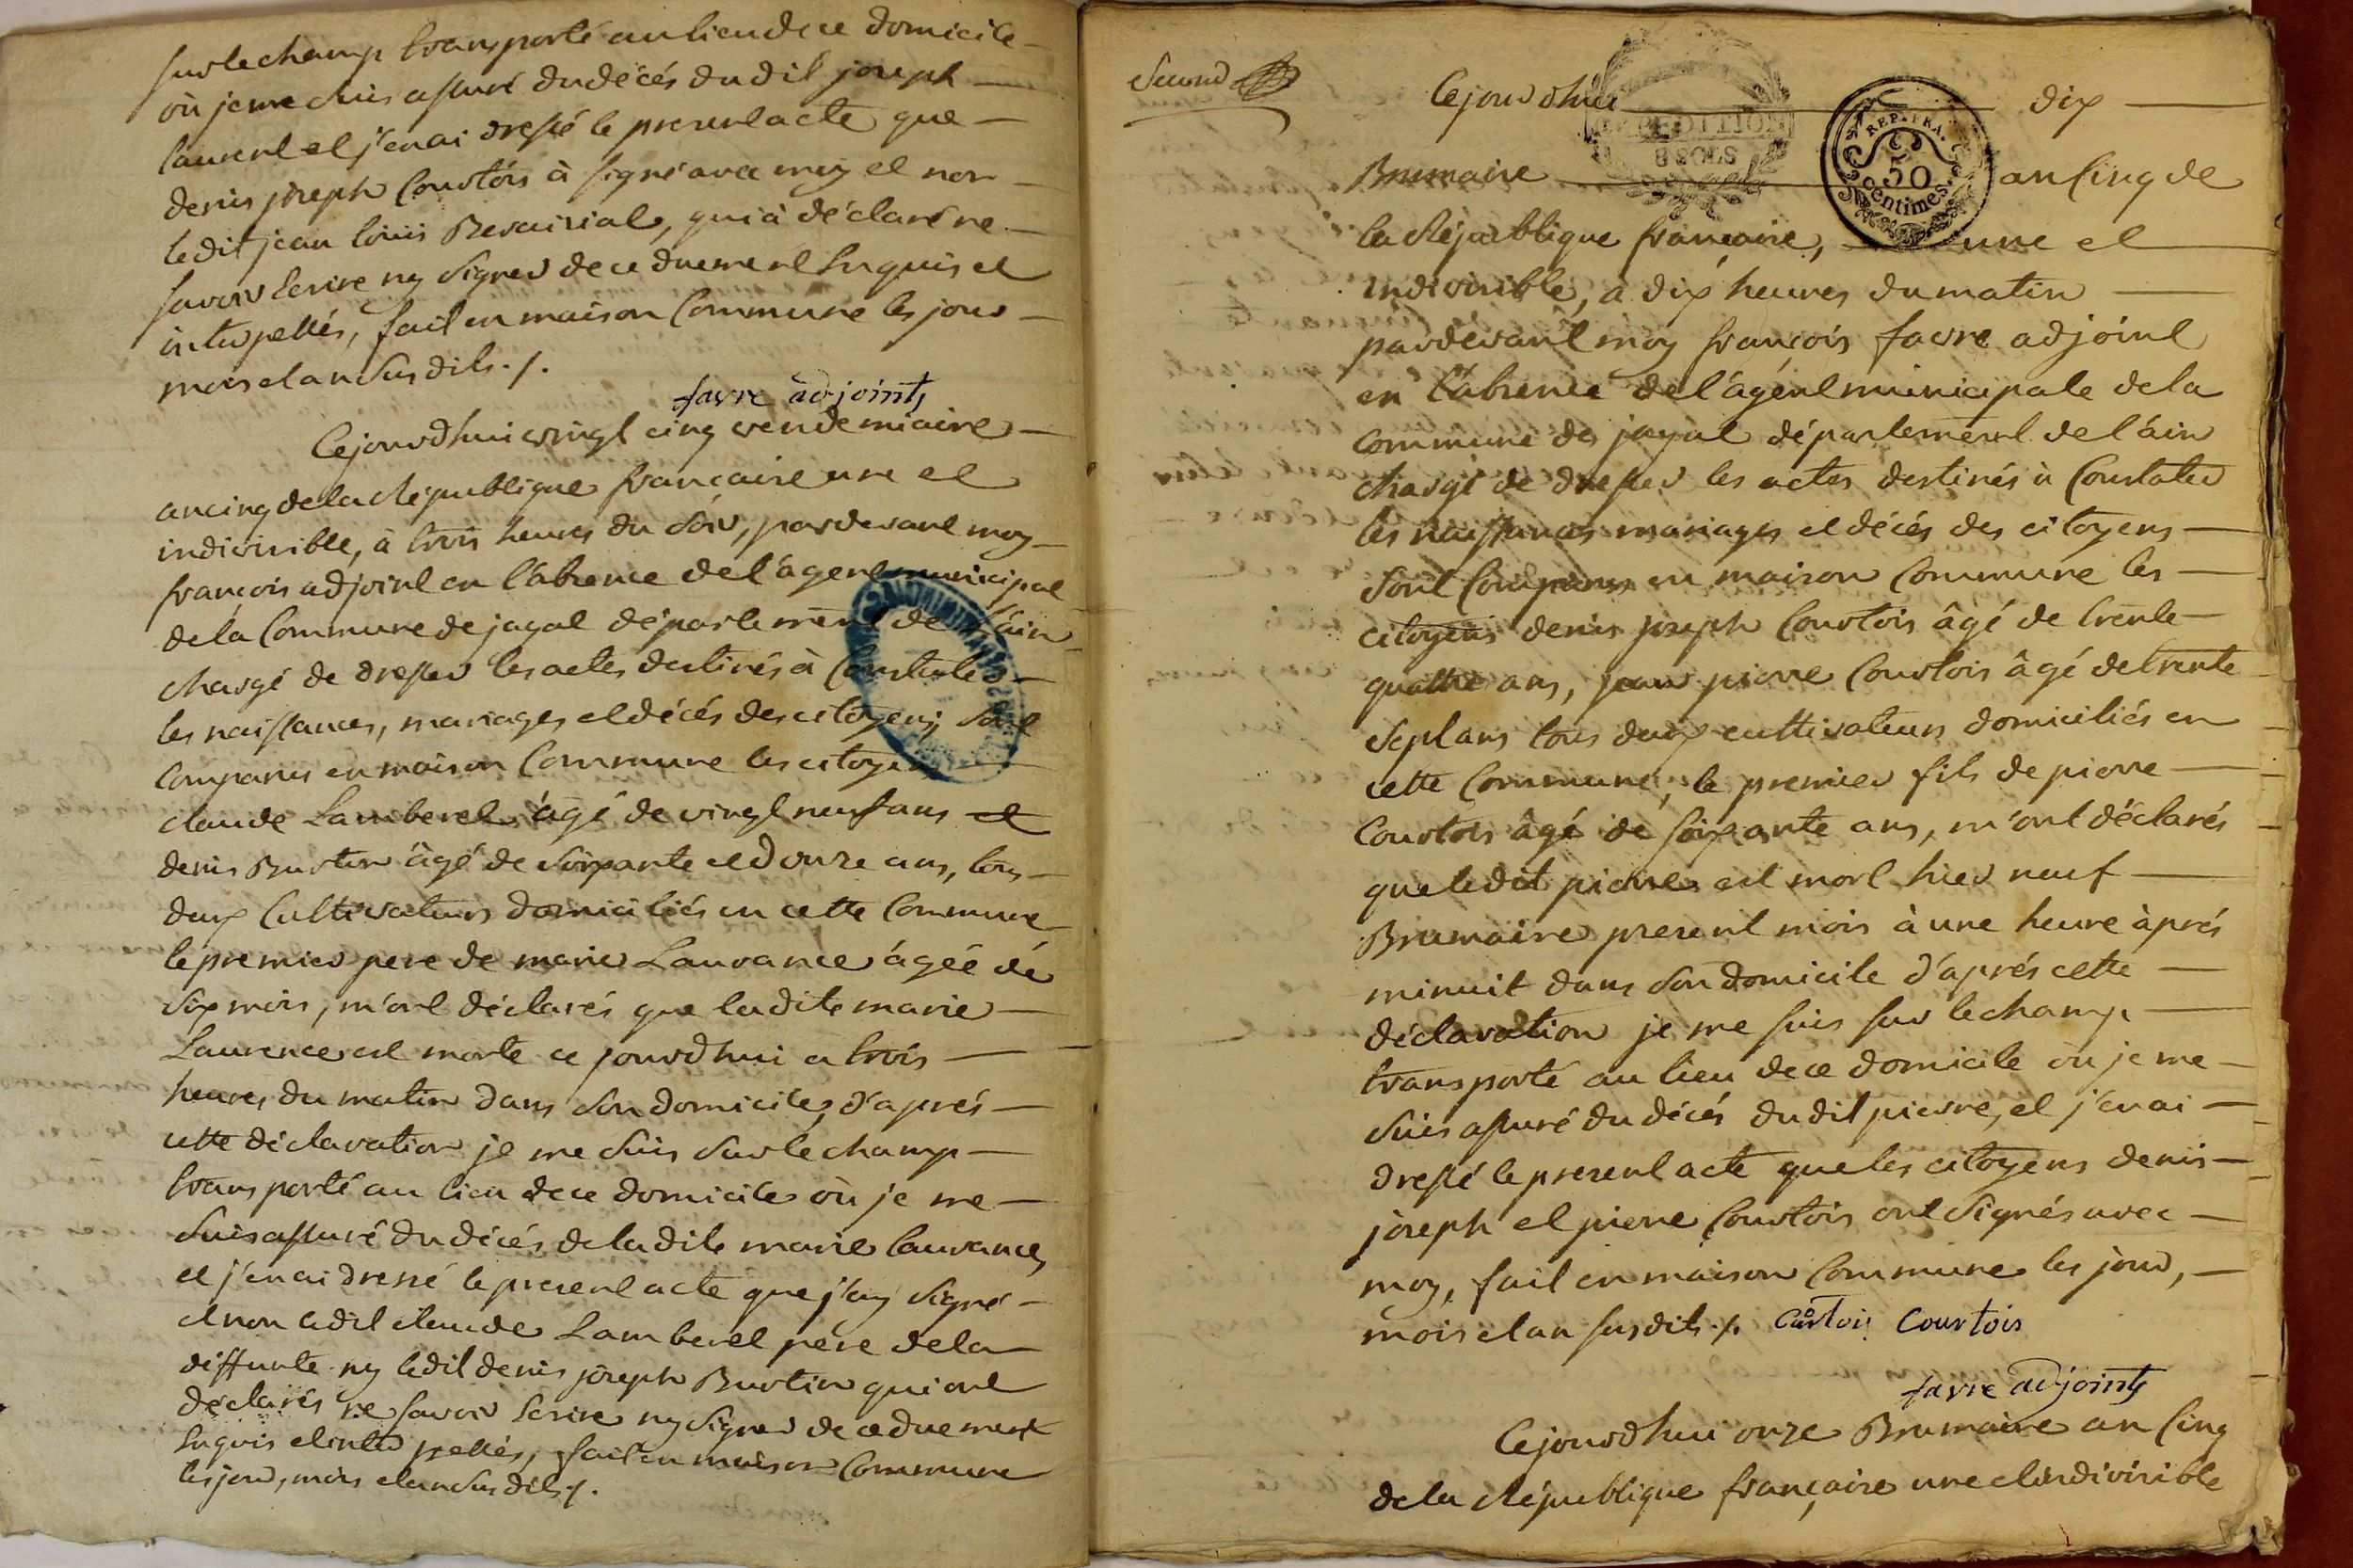 surlechamp transporté aulieudece domicile
où jeme suis assuré dudécés dudit joseph
laurent et j'enai dressé le present acte que
denis joseph Courtois à signé avec moy et non
ledit jean louis Revairial, qui à déclaré ne
savoir Ecrire ny signer dece duement Enquis et
interpellés, fait en maison Commune les jour
mois et an susdits ./.
favre adjoints
Cejourdhui vingt cinq vendemiaire
ancinq dela République française une et
indivisible, à trois heures du soir, pardevant moy
françois adjoint en l'absence de l'agent municipal
de la Commune de jayat département de l'ain
chargé de dresser les actes destinés à Constater
les naissances, mariages et décés des citoyens sont
Comparus en maison Commune les citoyens
claude Lamberet âgé de vingt neuf ans et
denis Burtin âgé de soixante et douze ans, tous
deux Cultivateurs domiciliés en cette Commune
le premier pere de marie Laurance âgée de
six mois, m'ont déclarés que ladite marie
Laurence est morte ce jourdhui a trois
heures du matin dans son domicile, d'aprés
cette déclaration je me suis surlechamp
transporté au lieu dece domicile où je me
suis assuré du décés deladite marie laurance
et j'enai dressé le present acte que j'ay signé
et non ledit claude Lamberet pere dela
deffunte ny ledit denis joseph Burtin qui ont
déclarés ne savoir Ecrire ny signer de ce duement
Enquis et interpellés, fait en maison Commune
les jour, mois et an susdits ./.
Second
Cejourdhui dix
EXPEDITION
REP. FRA.
50
centimes.
Brumaire an Cinq de
la République française, une et
indivisible, à dix heures du matin
pardevant moy françois favre adjoint
en l'absence de l'agent municipale de la
commune de jayat département de l'ain
chargé de dresser les actes destinés à Constater
les naissances mariages et décés des citoyens
sont Comparus en maison Commune les
citoyens denis joseph Courtois âgé de trente
quattre ans, jean pierre Courtois âgé de trente
sept ans tous deux cultivateurs domiciliés en
cette Commune, le premier fils de pierre
Courtois âgé de soixante ans, m'ont déclarés
que ledit pierre est mort hier neuf
Brumaire present mois à une heure àprés
minuit dans son domicile d'aprés cette
déclaration je me suis sur lechamp
transporté au lieu dece domicile où je me
suis assuré du décés dudit pierre, et j'enai
dressé le present acte que les citoyens denis
joseph et pierre Courtois ont signés avec
moy, fait en maison Commune les jour,
mois et an susdits ./. Courtois Courtois
favre adjoints
Cejourdhui onze Brumaire an Cinq
dela République française une et indivisible